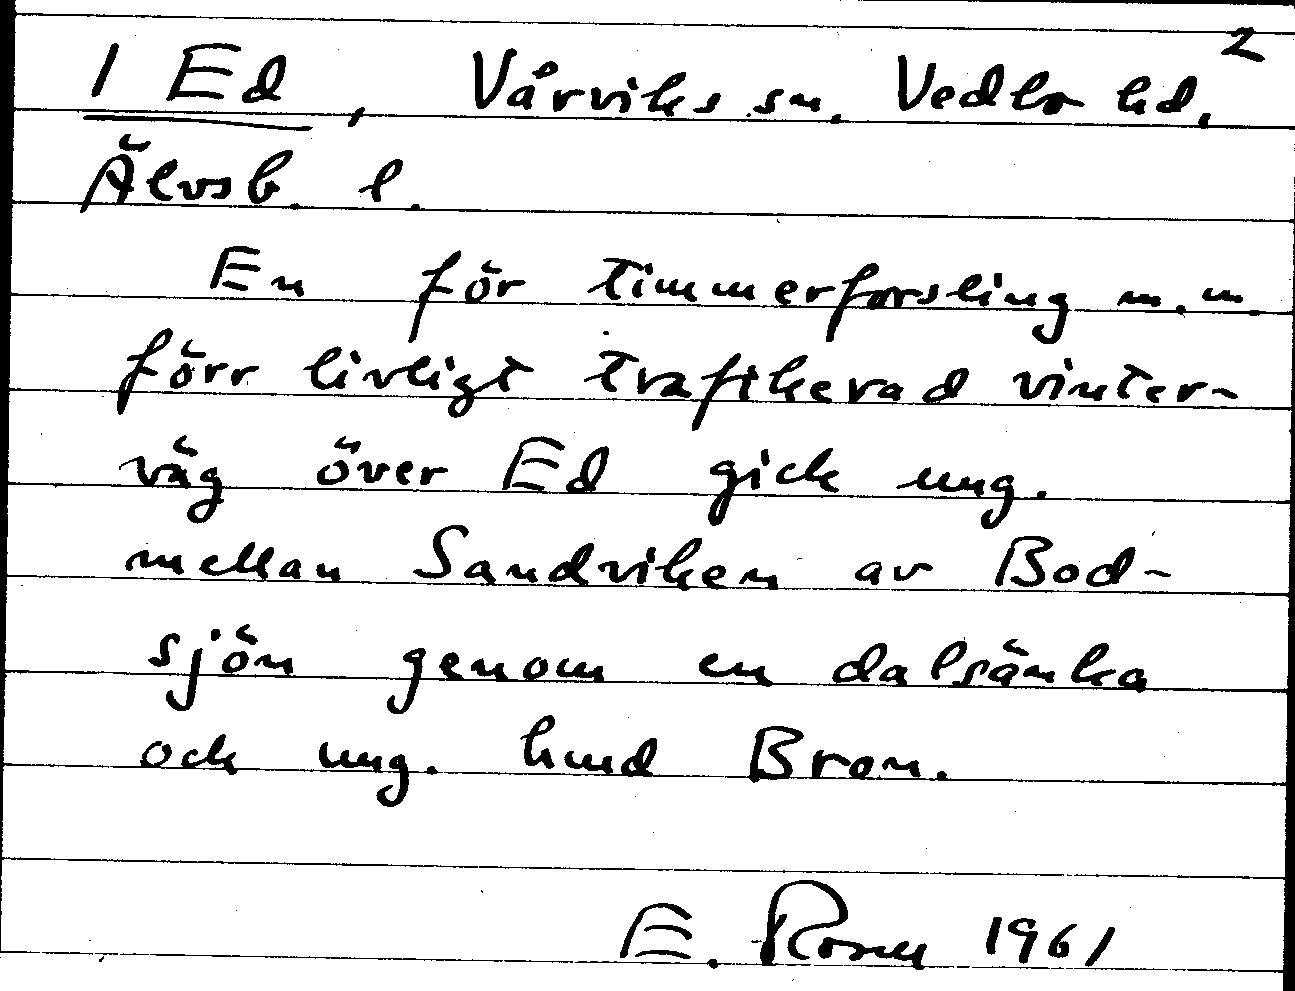 2
1 Ed, Vårviks sn. Vedbo hd.
Älvsb. l.
En för timmerforsling m.m.
förr livligt trafikerad vinter-
väg över Ed gick ung.
mellan Sandviken av Bod-
sjön genom en dalsänka
och ung. hund Bron.
E. Rosen 1961